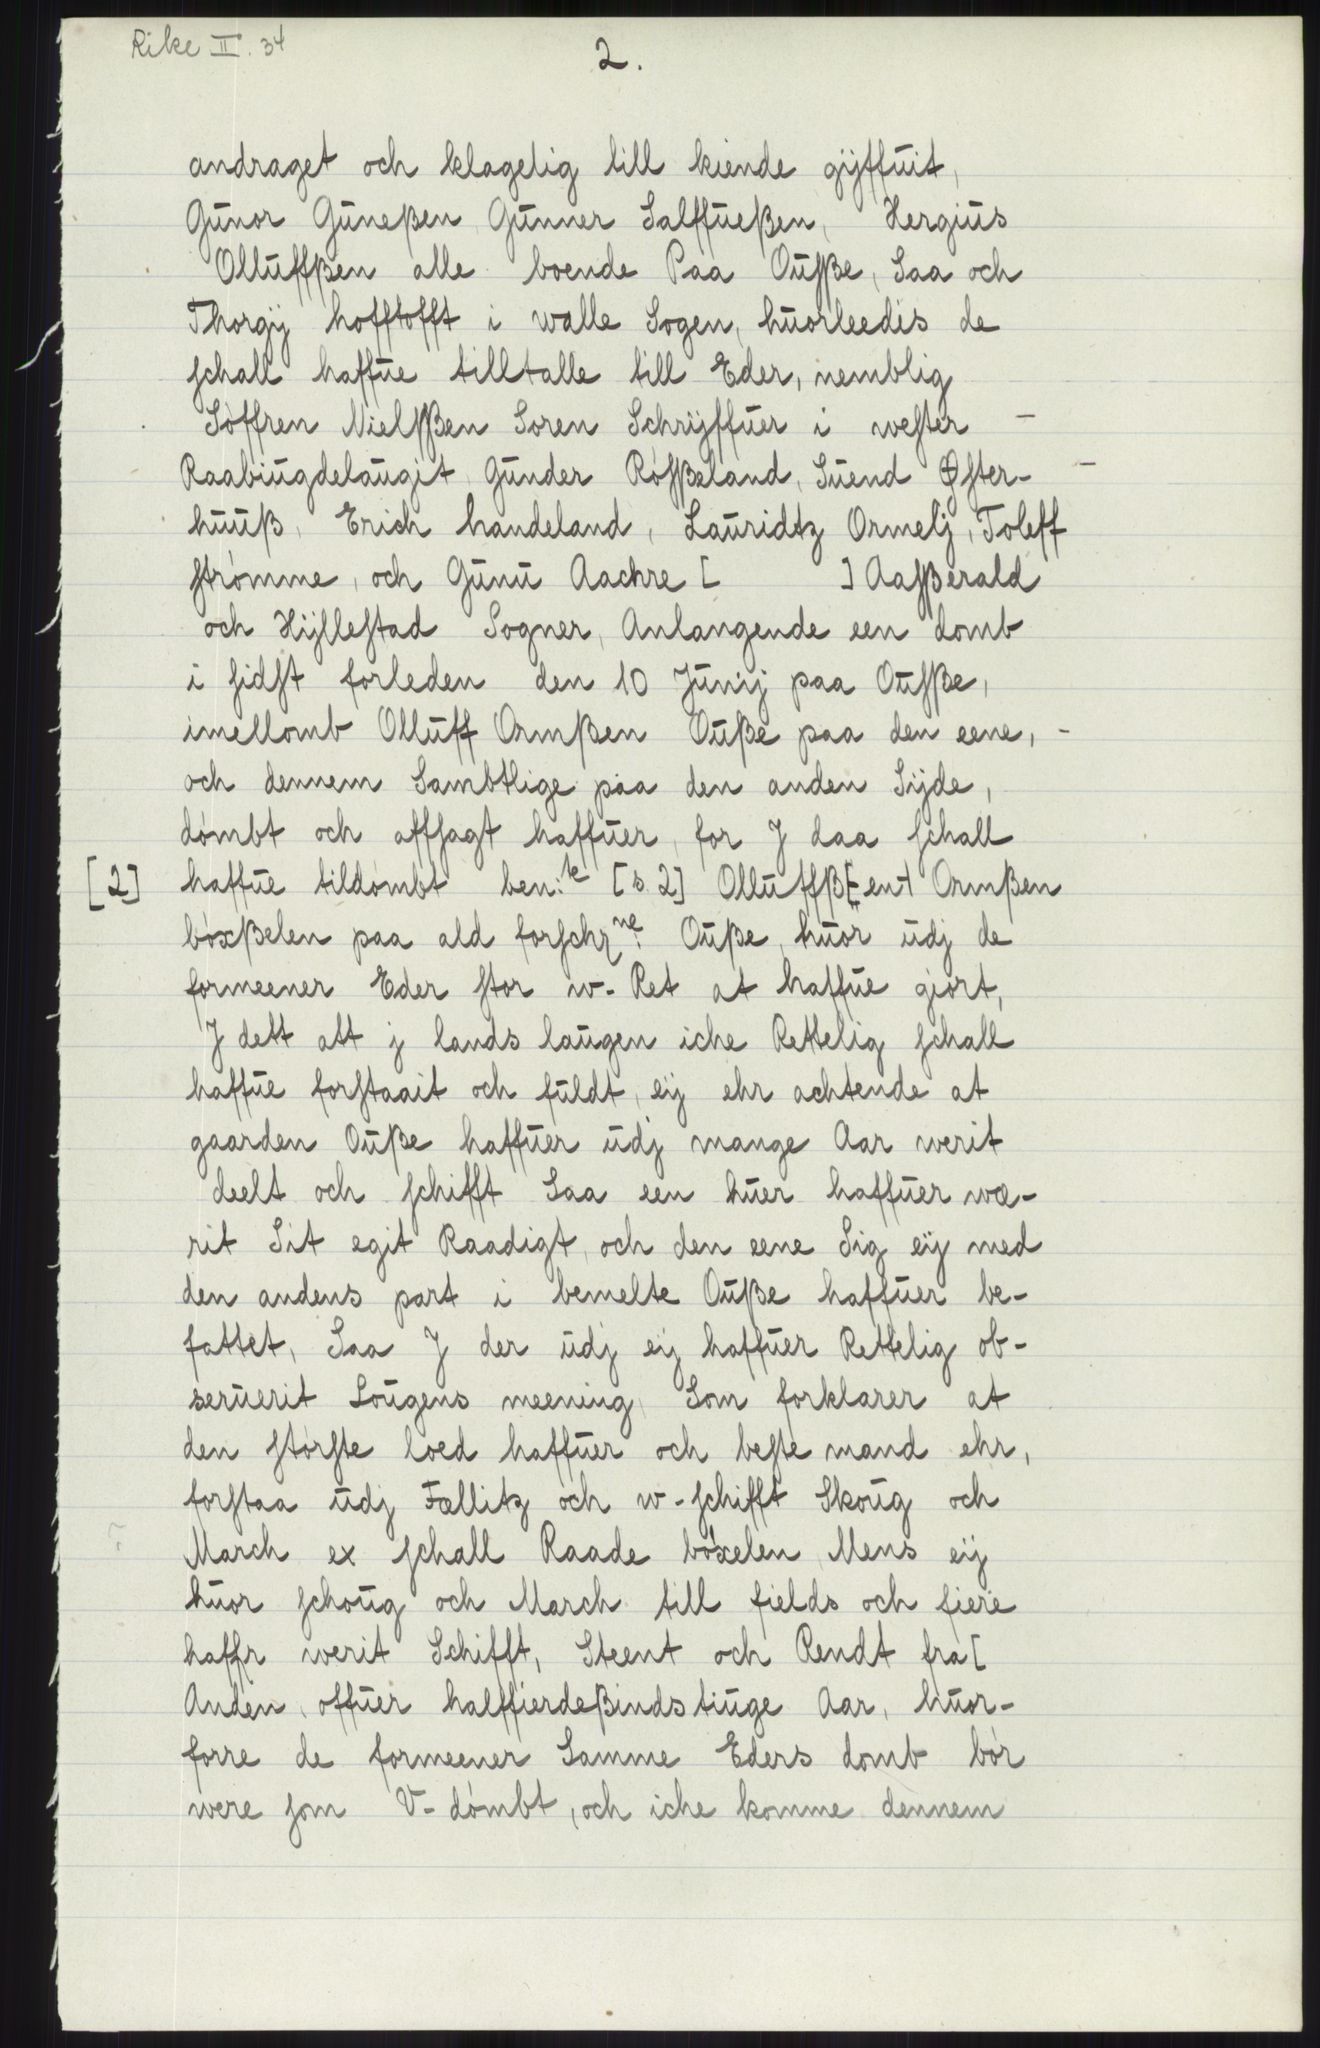 Rike II. 34
2.
andraget och klagelig till kiende gijffuit,
Gunor Guneßen Gunner Salffueßen, Hergius
Olluffßen alle boende Paa Oufße, Saa och
Thorgij hofftofft i walle Sogen, huorleedis de
schall haffue tilltalle till Eder, nemblig
Söffren Nielsßen Soren Schrijffuer i wester –
Raabiugdelaugit, Gunder Rösßeland, Suend Øster- –
huuß, Erich handeland, Lauridtz Ormelj, Toleff
strömme, och Gunu Aachre [ ] Aasßerald
och Hijllestad Sogner, Anlangende een domb
i sidst forleden den 10 Junij paa Ousße,
imellomb Olluff Ormßen Ouße paa den eene, –
och dennem Sambtlige paa den anden Sijde,
dömbt och affsagt haffuer, for J daa schall
[2] haffue tildömbt ben:te [s 2] Olluffß[-en+] Ormßen
böxßelen paa ald forschrne: Ouße, huor udj de
formeener Eder stor w-Ret at haffue giort,
J dett att j lands laugen iche Rettelig schall
haffue forstaait och fuldt, eij ehr achtende at
gaarden Ouße haffuer udj mange Aar werit
deelt och schifft Saa een huer haffuer wæ-
rit Sit egit Raadigt, och den eene Sig eij med
den andens part i bemelte Ouße haffuer be-
fattet, Saa J der udj eij haffuer Rettelig ob-
seruerit Lougens meening, Som forklarer at
den störste loed haffuer och beste mand ehr,
forstaa udj Fællitz och w-schifft Skoug och
March ex schall Raade böxelen, Mens eij
huor schoug och March till fields och fiere
haffr werit Schifft, Steent och Rendt fra [
Anden, offuer halffierdeßindstiuge Aar, huor-
forre de formeener Samme Eders domb bör
were som V-dömbt, och iche komme dennem